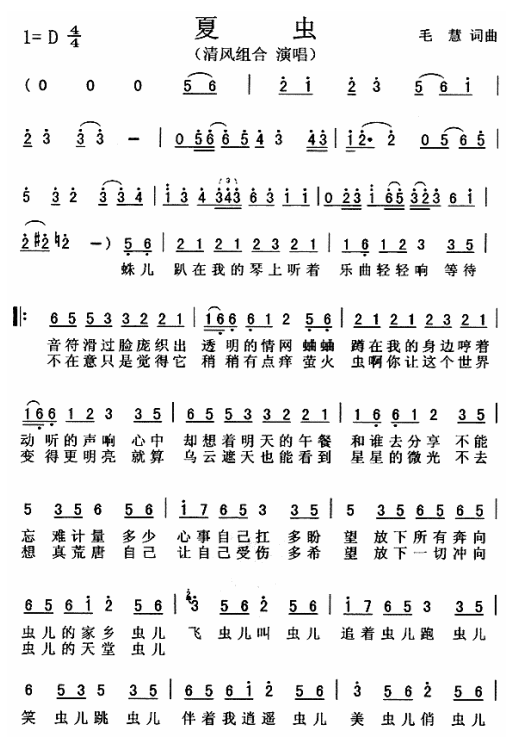 夏 虫
1= D 4/4
(清风组合 演唱)
毛 慧 词曲
(0 0 0 5 6 | 2 1 2 3 5 6 1 |
2 3 3 3 — | 0 5 6 6 5 4 3 4 3 | 1 2· 2 0 5 6 5 |
5 3 2 3 3 4 | 1 3 4 3 4 3 6 3 1 1 | 0 2 3 1 6 5 3 2 3 6 1 |
2 #2 2 —) 5 6 | 2 1 2 1 2 3 2 1 | 1 6 1 2 3 3 5 |
蛛儿 趴在我的琴上听着 乐曲轻轻响 等待
6 5 5 3 3 2 2 1 | 1 6 6 6 1 2 5 5 | 2 1 2 1 2 3 2 1 |
音符滑过脸庞织出 透明的情网 蛐蛐 蹲在我的身边哼着
不在意只是觉得它 稍稍有点痒 萤火 虫啊你让这个世界
1 6 6 1 2 3 3 5 | 6 5 5 3 3 2 2 1 | 1 6 6 1 2 3 5 |
动听的声响 心中 却想着明天的午餐 和谁去分享 不能
变得更明亮 就算 乌云遮天也能看到 星星的微光 不去
5 3 5 6 5 6 | 1 7 6 5 3 5 | 5 3 5 6 5 6 5 |
忘 难计量 多少 心事自己扛 多盼 望 放下所有奔向
想 真荒唐 自己 让自己受伤 多希 望 放下一切冲向
6 5 6 1 2 5 6 | 3 5 6 2 5 6 | 1 7 6 5 3 5 6 |
虫儿的家乡 虫儿 飞 虫儿叫 虫儿 追着虫儿跑 虫儿
虫儿的天堂 虫儿
6 5 3 5 3 5 | 5 5 5 6 2 5 6 | 3 5 6 2 5 6 |
笑 虫儿跳 虫儿 伴着我逍遥 虫儿 美 虫儿俏 虫儿